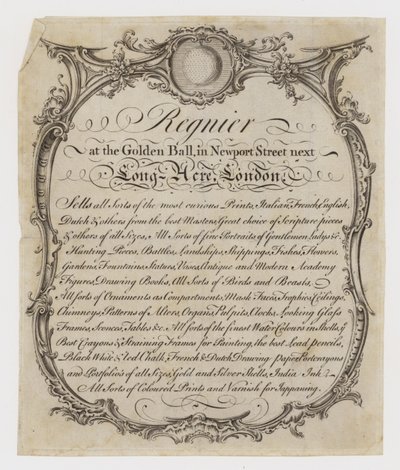 Regnier
at the Golden Ball, in Newport Street next
Long-Acre, London,
Sells all Sorts of the most curious Prints, Italian, French, English,
Dutch & others from the best Masters, Great choice of Scripture pieces
& others of all Sizes, All Sorts of fine Portraits of Gentlemen Ladys &c
Hunting Pieces, Battles, Landskips, Shippings, Fishes, Flowers,
Gardens, Fountains, Statues, Vases, Antique and Modern Academy
Figures, Drawing Books, All Sorts of Birds and Beasts.
All sorts of Ornaments as Compartments, Mask Faces, Trophies, Ceilings,
Chimneys, Patterns of Alters, Organs, Pulpits, Clocks, Looking Glass
Frames, Sconces, Tables &c. All Sorts of the finest Water Colours in Shells, ye
Best Crayons & Straining Frames for Painting, the best Lead pencils,
Black White & Red Chalk, French & Dutch Drawing paper Portcrayons
and Portfolio's of all Sizes, Gold and Silver Shells, India Ink &
All Sorts of Coloured Prints and Varnish for Jappaning.